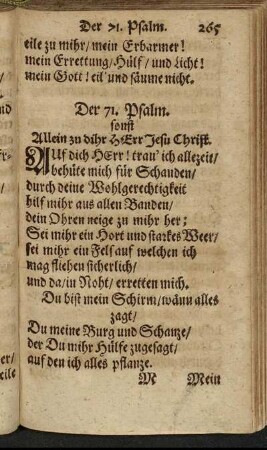 Der 71. Psalm. 265
eile zu mihr/ mein Erbarmer!
mein Errettung/ Hülf/ und Licht!
mein Gott! eil' und säume nicht.
Der 71. Psalm.
sonst
Allein zu dihr HErr Jesu Christ.
AUf dich HErr! trau' ich allezeit/
behüte mich für Schanden/
durch deine Wohlgerechtigkeit
hilf mihr aus allen Banden/
dein Ohren neige zu mihr her;
Sei mihr ein Hort und starkes Weer/
sei mihr ein Fels auf welchen ich
mag fliehen sicherlich/
und da/ in Noht/ erretten mich.
Du bist mein Schirm/ wänn alles
zagt/
Du meine Burg und Schanze/
der Du mihr Hülfe zugesagt/
auf den ich alles pflanze.
M Mein